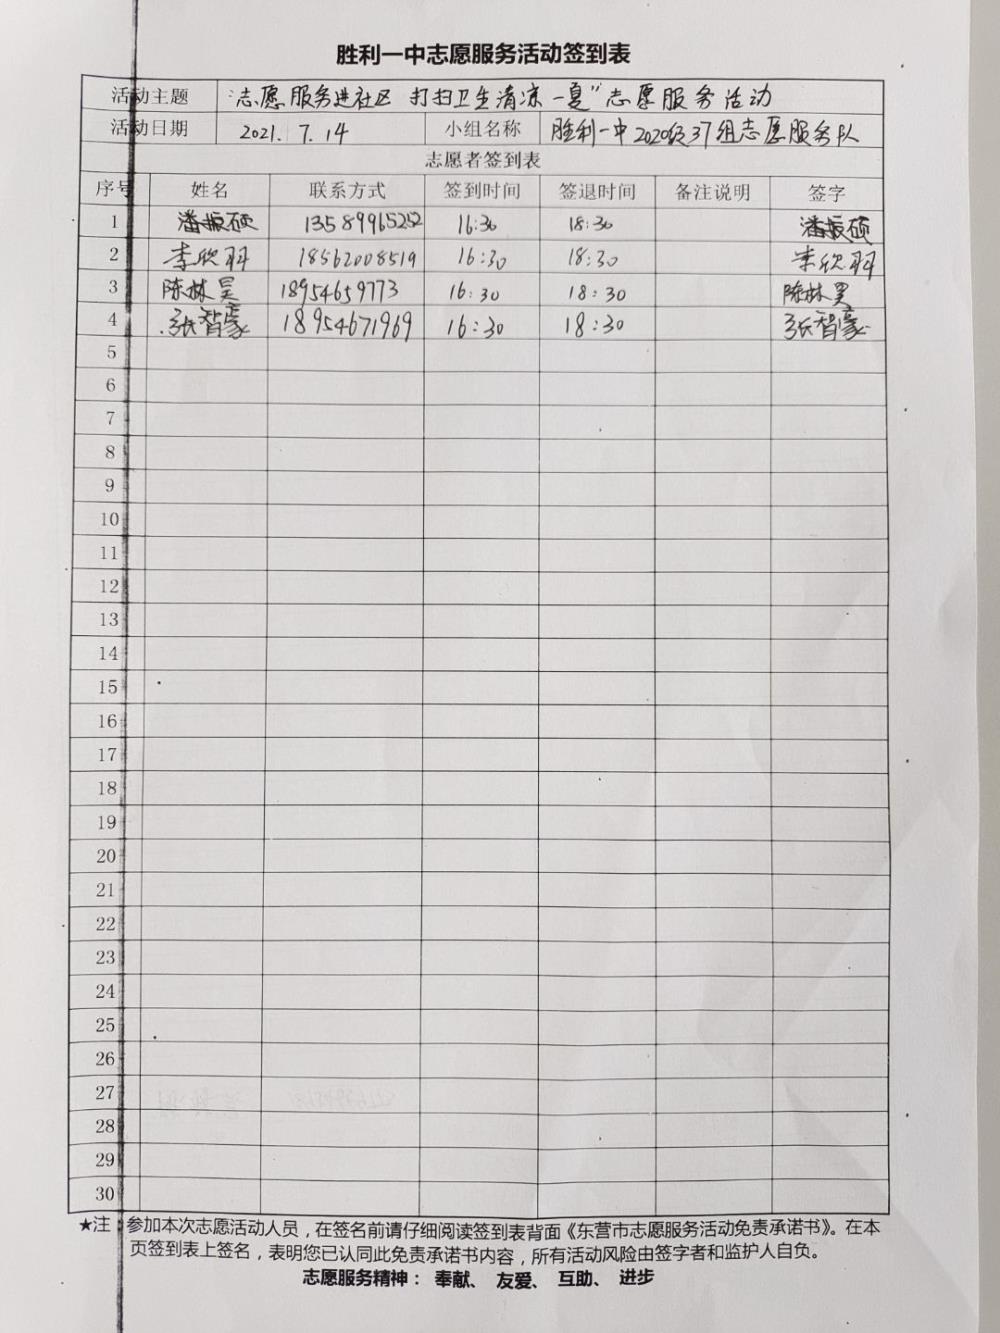 胜利一中志愿服务活动签到表
活动主题 “志愿服务进社区 打扫卫生清凉一夏”志愿服务活动
活动日期 2021.7.14 小组名称 胜利一中2020级37组志愿服务队
志愿者签到表
序号 姓名 联系方式 签到时间 签退时间 备注说明 签字
1 潘振硕 13589915252 16:30 18:30 潘振硕
2 李欣羽 18562008519 16:30 18:30 李欣羽
3 陈林昊 18954659773 16:30 18:30 陈林昊
4 张智豪 18954671969 16:30 18:30 张智豪
5
6
7
8
9
10
11
12
13
14
15
16
17
18
19
20
21
22
23
24
25
26
27
28
29
30
★注：参加本次志愿活动人员，在签名前请仔细阅读签到表背面《东营市志愿服务活动免责承诺书》。在本
页签到表上签名，表明您已认同此免责承诺书内容，所有活动风险由签字者和监护人自负。
志愿服务精神：奉献、友爱、互助、进步